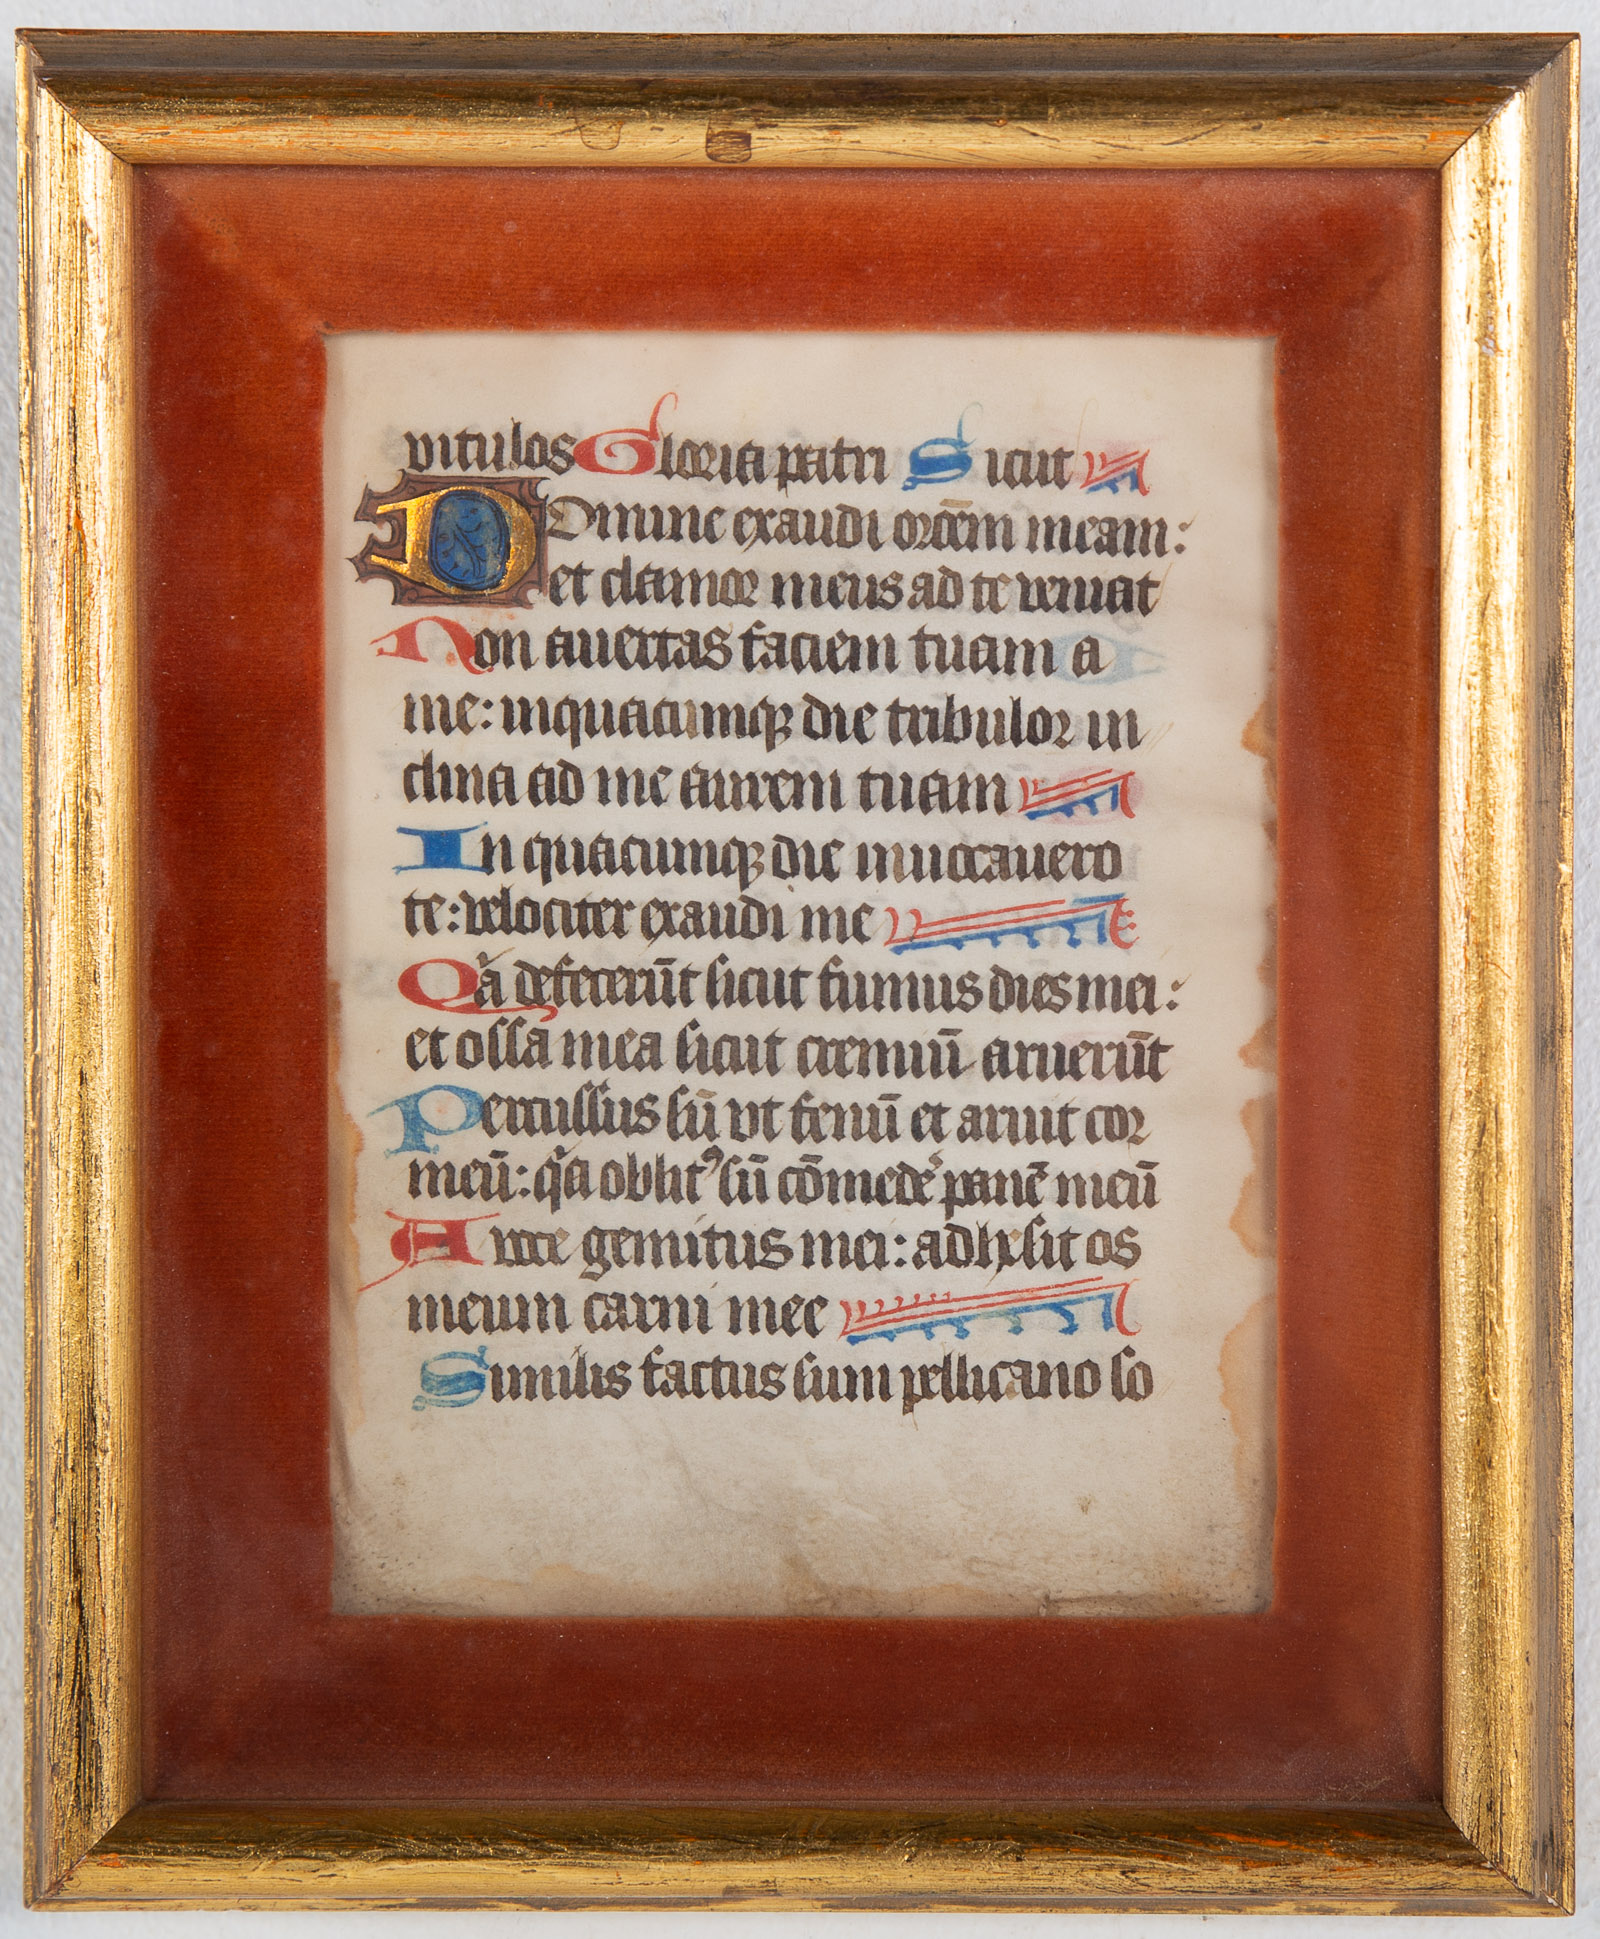 vitulos Gloria patri Sicut
DOmine exaudi orōēm meam:
et clamor meus ad te veniat
Non auertas faciem tuam a
me: inquacumq; die tribulor in
clina ad me aurem tuam
In quacumq; die inuocauero
te: velociter exaudi me
Qa defecerūt sicut fumus dies mei:
et ossa mea sicut cremiū aruerūt
Percussus sū vt fenū et aruit cor
meū: qa oblitꝰ sū cōmedē panē meū
A voce gemitus mei: adhesit os
meum carni mee
Similis factus sum pellicano so